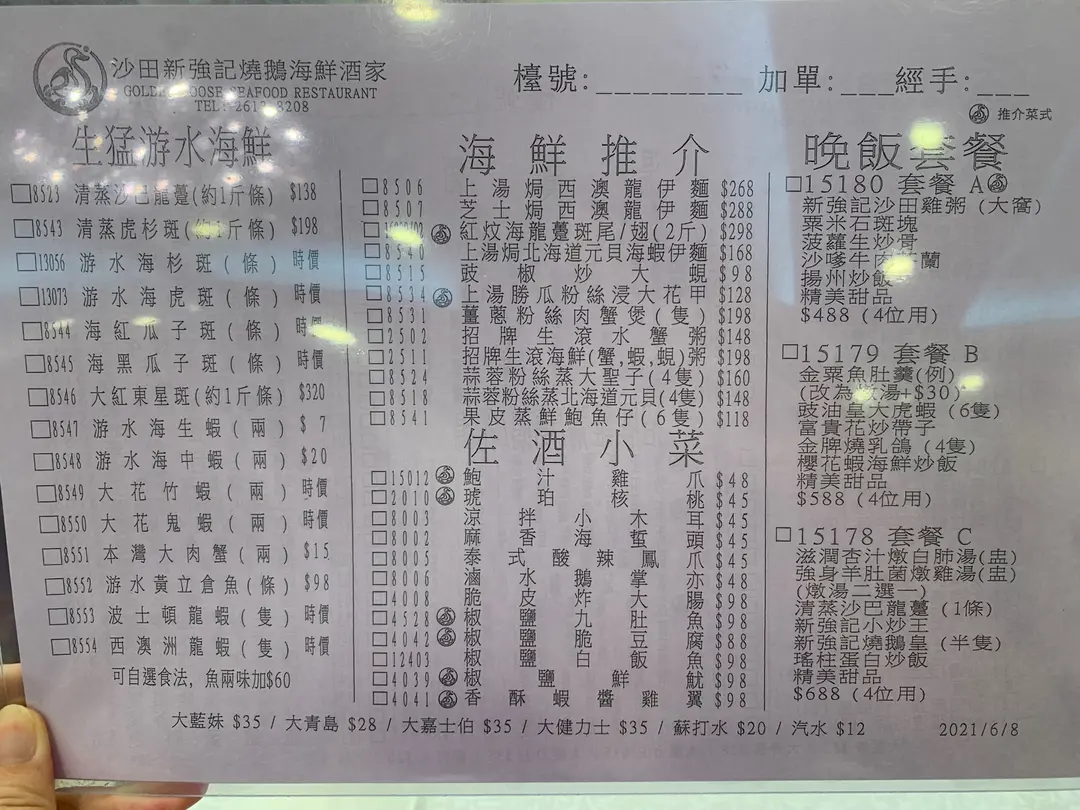 沙田新強記燒鵝海鮮酒家
GOLDEN GOOSE SEAFOOD RESTAURANT
TEL: 2612 8208
檯號:________ 加單:___經手:___
推介菜式
生猛游水海鮮
□8523 清蒸沙巴龍躉(約1斤條) $138
□8543 清蒸虎杉斑(約1斤條) $198
□13056 游水海杉斑(條) 時價
□13073 游水海虎斑(條) 時價
□8544 海紅瓜子斑(條) 時價
□8545 海黑瓜子斑(條) 時價
□8546 大紅東星斑(約1斤條) $320
□8547 游水海生蝦(兩) $7
□8548 游水海中蝦(兩) $20
□8549 大花竹蝦(兩) 時價
□8550 大花鬼蝦(兩) 時價
□8551 本灣大肉蟹(兩) $15
□8552 游水黃立倉魚(條) $98
□8553 波士頓龍蝦(隻) 時價
□8554 西澳洲龍蝦(隻) 時價
可自選食法，魚兩味加$60
海鮮推介
□8506 上湯焗西澳龍伊麵 $268
□8507 芝士焗西澳龍伊麵 $288
□ 紅炆海龍躉斑尾/翅(2斤) $298
□8540 上湯焗北海道元貝海蝦伊麵 $168
□8515 豉椒炒大蜆 $98
□8534 上湯勝瓜粉絲浸大花甲 $128
□8531 薑蔥粉絲肉蟹煲(隻) $198
□2502 招牌生滾水蟹粥 $148
□2511 招牌生滾海鮮(蟹,蝦,蜆)粥 $198
□8524 蒜蓉粉絲蒸大聖子(4隻) $160
□8518 蒜蓉粉絲蒸北海道元貝(4隻) $148
□8541 果皮蒸鮮鮑魚仔(6隻) $118
佐酒小菜
□15012 鮑汁雞爪 $48
□2010 琥珀核桃 $45
□8003 涼拌小木耳 $45
□8002 麻香海蜇頭 $45
□8005 泰式酸辣鳳爪 $45
□8006 滷水鵝掌亦 $48
□4008 脆皮炸大腸 $98
□4528 椒鹽九肚魚 $98
□4042 椒鹽脆豆腐 $88
□12403 椒鹽白飯魚 $98
□4039 椒鹽鮮魷 $98
□4041 香酥蝦醬雞翼 $98
晚飯套餐
□15180 套餐 A
新強記沙田雞粥 (大窩)
粟米石斑塊
菠蘿生炒骨
沙嗲牛肉 蘭
揚州炒飯
精美甜品
$488 (4位用)
□15179 套餐 B
金粟魚肚羹(例)
(改為 湯+$30)
豉油皇大虎蝦 (6隻)
富貴花炒帶子
金牌燒乳鴿 (4隻)
櫻花蝦海鮮炒飯
精美甜品
$588 (4位用)
□15178 套餐 C
滋潤杏汁燉白肺湯(盅)
強身羊肚菌燉雞湯(盅)
(燉湯二選一)
清蒸沙巴龍躉 (1條)
新強記小炒王
新強記燒鵝皇 (半隻)
瑤柱蛋白炒飯
精美甜品
$688 (4位用)
大藍妹 $35 / 大青島 $28 / 大嘉士伯 $35 / 大健力士 $35 / 蘇打水 $20 / 汽水 $12
2021/6/8